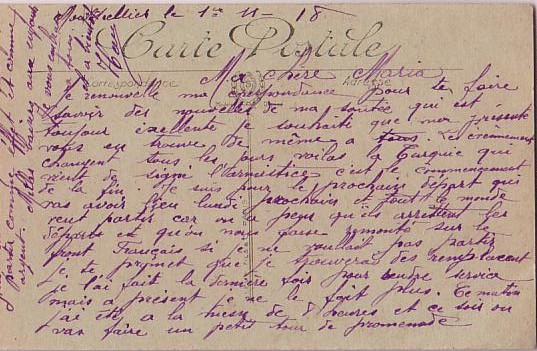 Montpellier le 1er 11 - 18
Carte Postale
Correspondance
Adresse
Ma chère Maria
Je renouvelle ma correspondance pour te faire
savoir des nouvelles de ma santée qui est
toujour exellente je souhaite que ma présente
vous en trouve de même a tous. Les évènement
changent tous les jours voilas la Turquie qui
vient de signé l'armistice c'est le commencement
de la fin. Je suis pour le prochain départ qui
vas avoir lieu lundi prochain et tout le monde
veut partir car on a peur qu'ils arrettent les
départs et qu'on nous fasse remonté sur le
front Français si je ne voulait pas partir
je te promet que je trouverai des remplacent
je l'ai fait la dernière fois pour rendre service
mais a présent je ne le fait plus. Ce matin
j'ai été a la messe de 8 heures et ce soir on
vas faire un petit tour de promenade
partir comme
argent. Milles baisers aux enfants